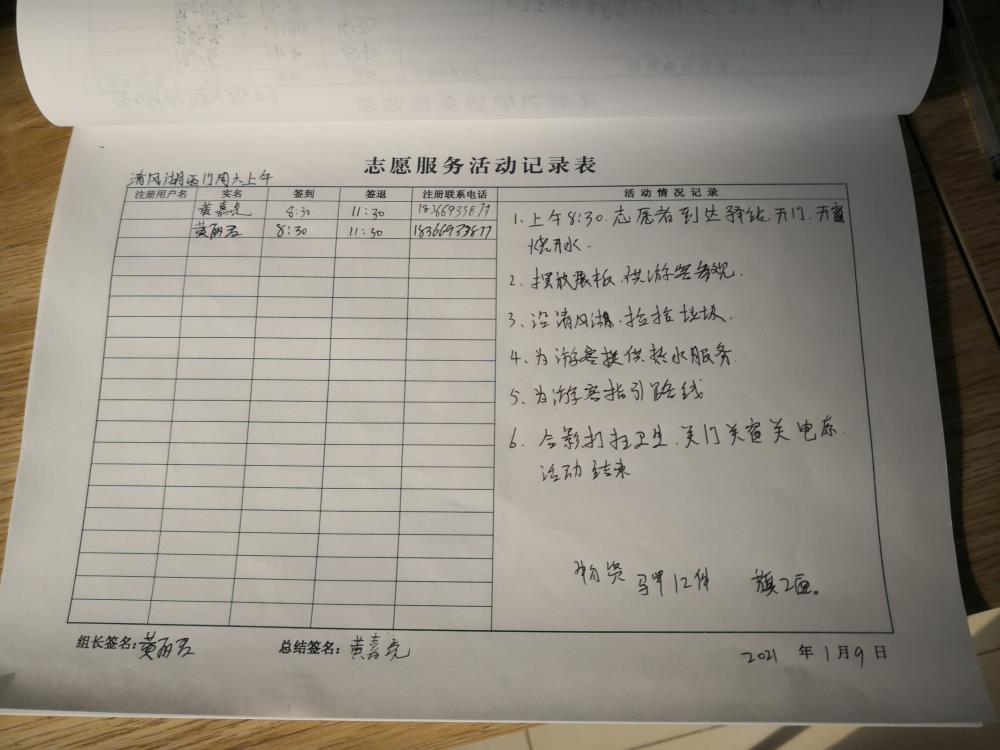 志愿服务活动记录表
清风湖西门周六上午
注册用户名 实名 签到 签退 注册联系电话 活动情况记录
黄嘉亮 8:30 11:30
黄丽君 8:30 11:30
1.上午8:30.志愿者到达驿站.开门.开窗
烧开水.
2.摆放展板.供游客参观.
3.沿清风湖.捡拾垃圾.
4.为游客提供热水服务.
5.为游客指引路线
6.合影打扫卫生.关门关窗关电源.
活动结束
物资 马甲12件 旗2面。
组长签名:黄丽君 总结签名:黄嘉亮 2021年1月9日